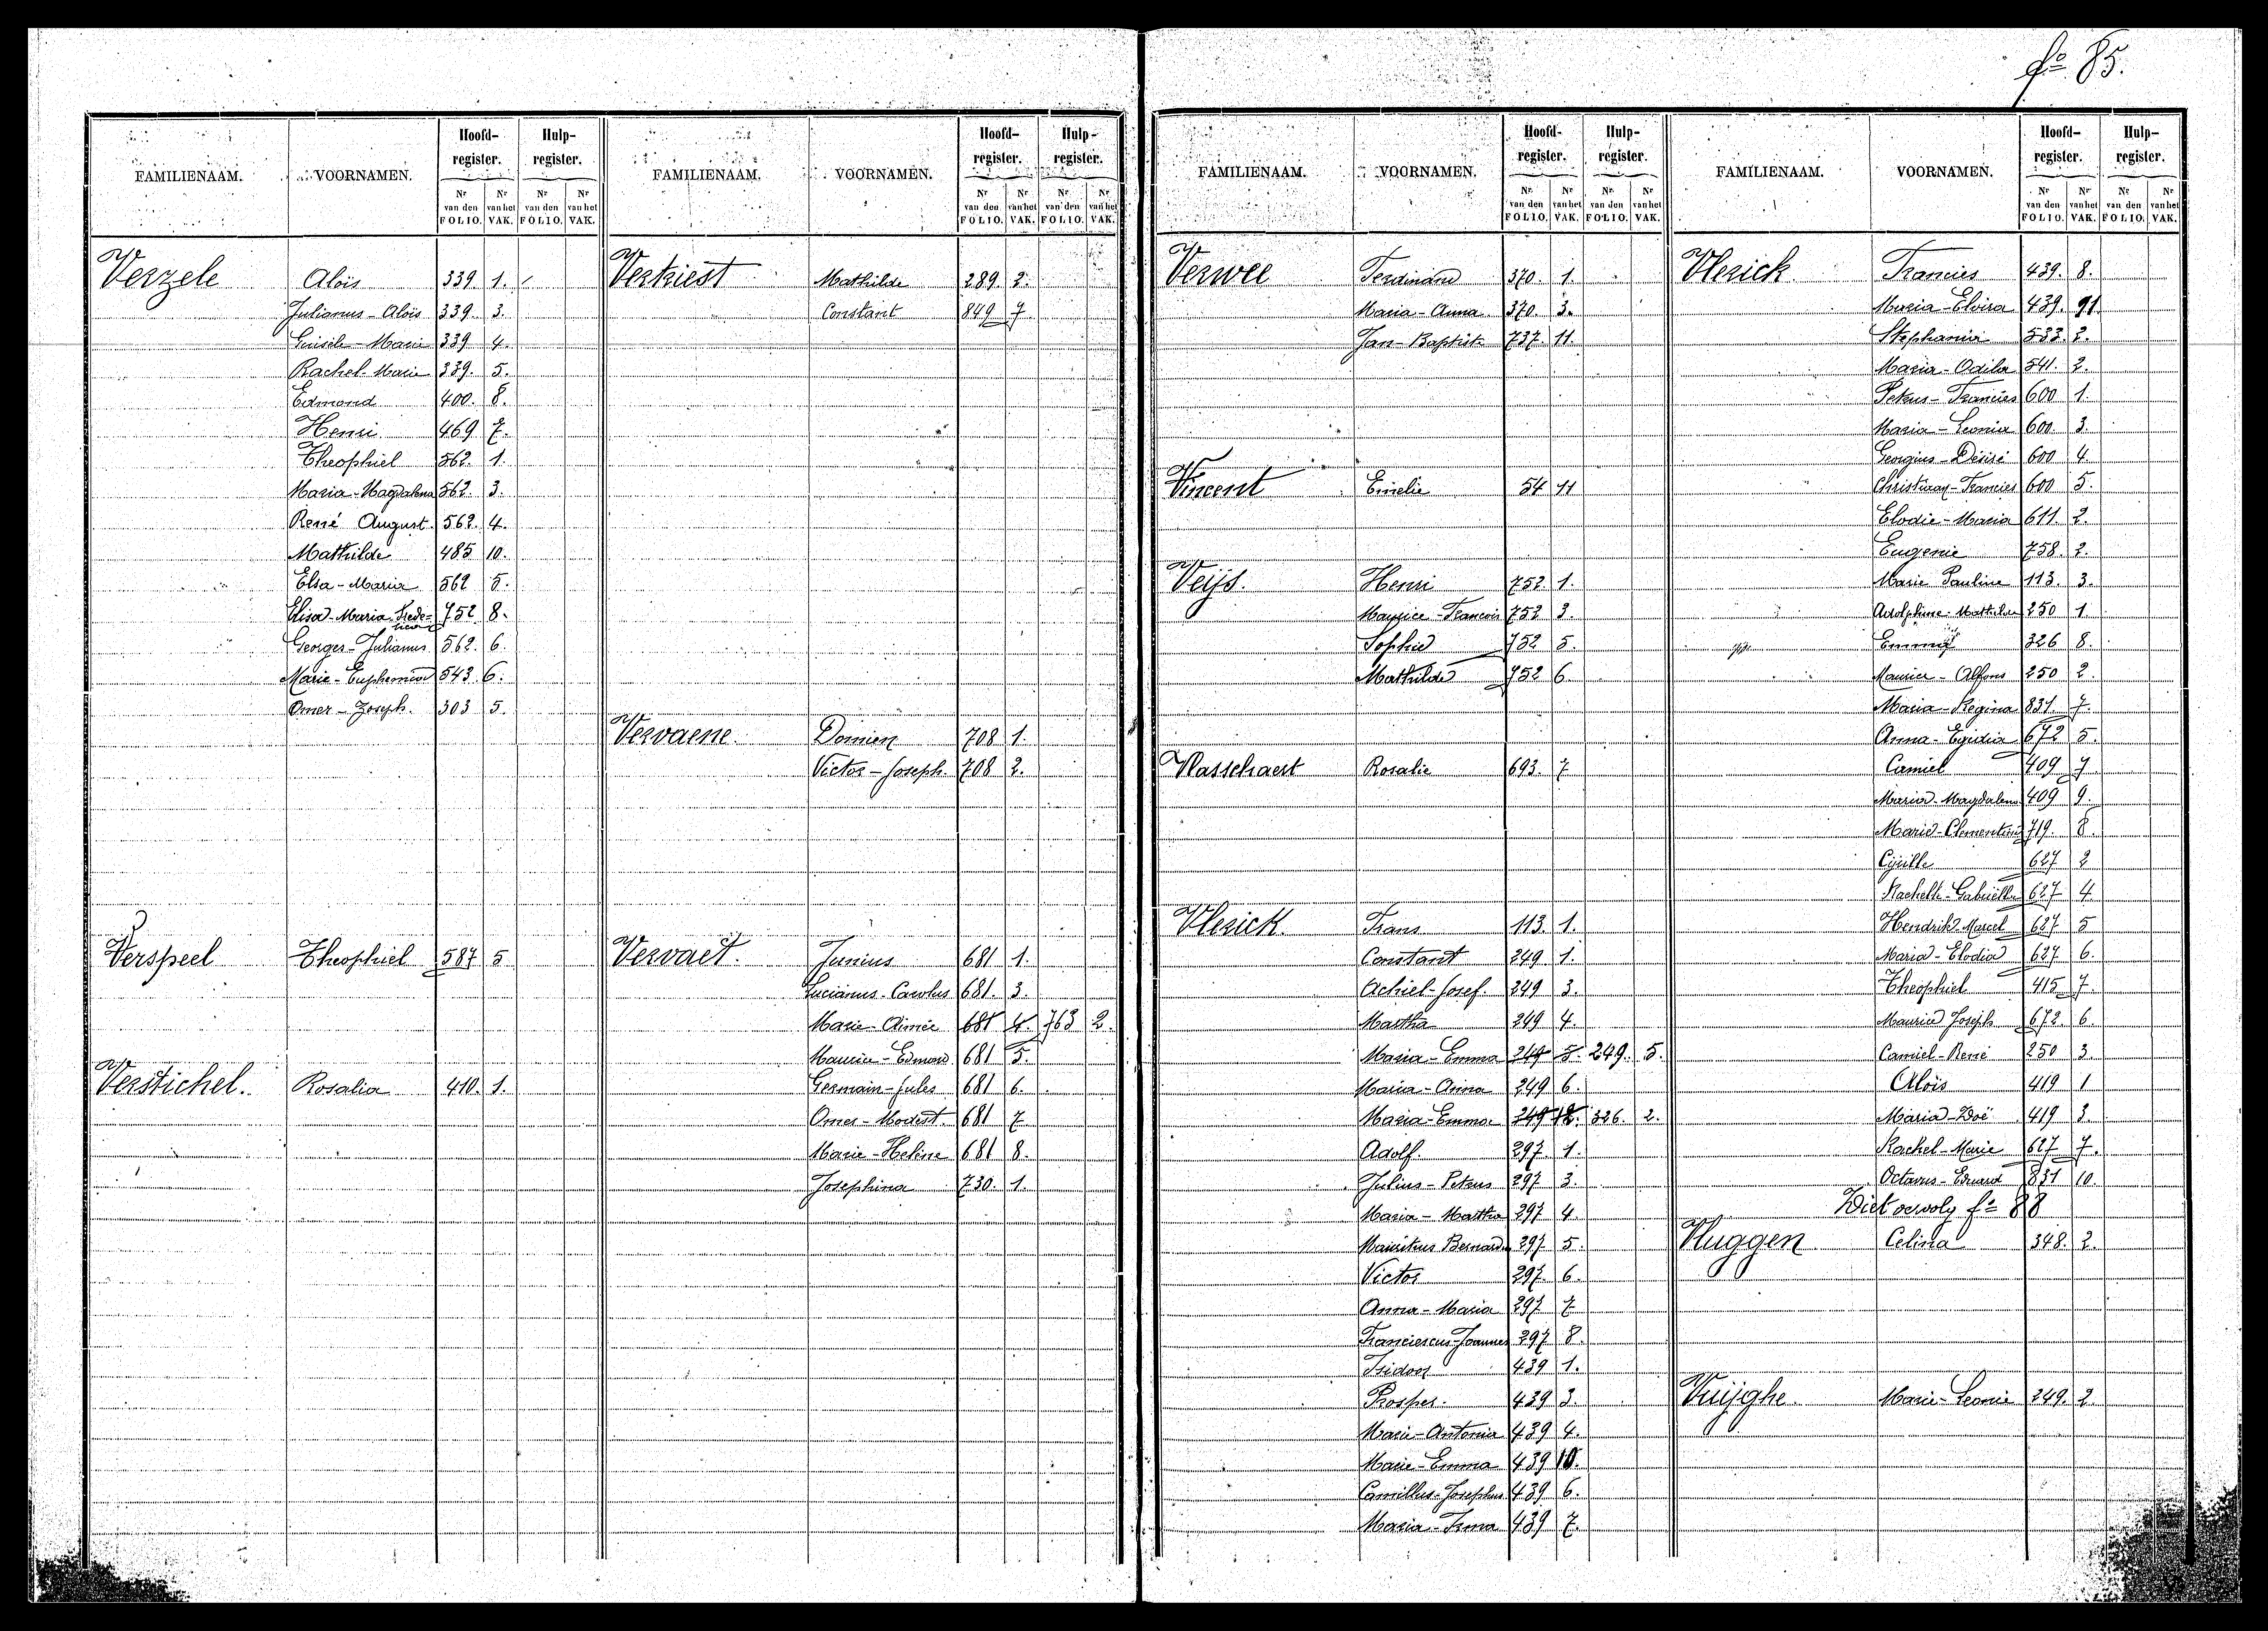 fº 85.
FAMILIENAAM. VOORNAMEN. Hoofd-register. Hulp-register.
Nr van den FOLIO. Nr van het VAK. Nr van den FOLIO. Nr van het VAK.
Verzele Aloïs 339 1.
Julianus - Aloïs 339. 3.
Marie 339 4.
Rachel Marie 339. 5.
Edmond 400. 8.
Henri 469 7.
Theophiel 562. 1.
Maria - Magdalena 562. 3.
René August. 562. 4.
Mathilde 485 10.
Elsa - Maria 562 5.
Elisa - Maria Frede= rica 752 8.
Georges - Julianus 562. 6.
Marie - Euphemia 543. 6.
Omer - Joseph. 303 5.
Verspeel Theophiel 587 5
Verstichel. Rosalia 410. 1.
FAMILIENAAM. VOORNAMEN. Hoofd-register. Hulp-register.
Nr van den FOLIO. Nr van het VAK. Nr van den FOLIO. Nr van het VAK.
Verkiest Mathilde 289. 2.
Constant 849 7
Vervaene. Domien 708 1.
Victor - Joseph. 708 2.
Vervaet. Junius 681 1.
Lucianus - Carolus 681. 3.
Marie - Aimée 681 4. 763 2.
Maurice - Edmond 681 5.
Germain - Jules 681 6.
Omer - Modest. 681 7
Marie - Helène 681 8.
Josephina 730. 1.
FAMILIENAAM. VOORNAMEN. Hoofd-register. Hulp-register.
Nr van den FOLIO. Nr van het VAK. Nr van den FOLIO. Nr van het VAK.
Verwee Ferdinand 370. 1.
Maria - Anna 370. 3.
Jan - Baptist 737. 11.
Vincent Emelie 54 11
Veijs. Henri 752 1.
Maurice - Francois 752 3.
Sophie 752 5.
Mathilde 752 6.
Vlasschaert Rosalie 693. 7
Vlerick Frans 113. 1.
Constant 249 1.
Achiel - Josef. 249 3.
Martha 249 4.
Maria - Emma 249 5. 249. 5.
Maria - Anna 249 6.
Maria - Emma 249 12. 326. 2.
Adolf. 297 1.
Julius - Petrus 297 3.
Maria - Martha 297 4.
Mauritius Bernardus 297 5.
Victor 297. 6.
Anna - Maria 297 7
Franciescus - Joannes 297 8.
Isidoor 439 1.
Prosper. 439 3.
Marie - Antonia 439 4.
Marie - Emma 439 10.
Camillus - Josephus 439 6.
Maria - Irma 439 7.
FAMILIENAAM. VOORNAMEN. Hoofd-register. Hulp-register.
Nr van den FOLIO. Nr van het VAK. Nr van den FOLIO. Nr van het VAK.
Vlerick. Francies 439. 8.
Maria - Elvira 439. 91
Stephania 533. 2.
Maria - Odila 541. 2.
Petrus - Francies 600 1.
Maria - Leonia 600. 3.
Georgius - Désiré 600 4.
Christiaan - Francies 600 5.
Elodie - Maria 611. 2.
Eugenie 758. 2.
Marie Pauline 113. 3.
Adolphine - Mathilde 250 1.
Emma 326 8.
Maurice - Alfons 250 2.
Maria - Regina 831 7.
Anna - Egidia 672 5.
Camiel 409 7
Maria - Magdalena 409 9.
Marie - Clementine 719. 8.
Cyrille 627 2
Rachelle - Gabriëlle 627 4
Hendrik Marcel 627 5
Maria - Elodia 627 6.
Theophiel 415 7.
Maurice Joseph 672. 6.
Camiel - René 250 3.
Aloïs 419 1
Maria - Zoë 419 3.
Rachel - Marie 627 7.
Octavus - Eduard 831 10.
Ziet vervolg fº 88
Vluggen Celina 348. 2.
Vuijghe. Marie - Leonie 249. 2.